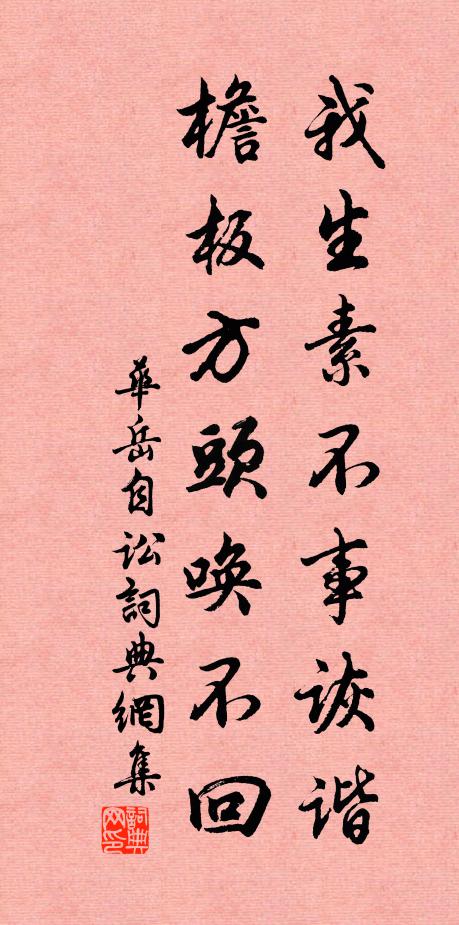 我生素不事诙谐
檐板方頭喚不回
華岳自讼詞典網集
詞典网印